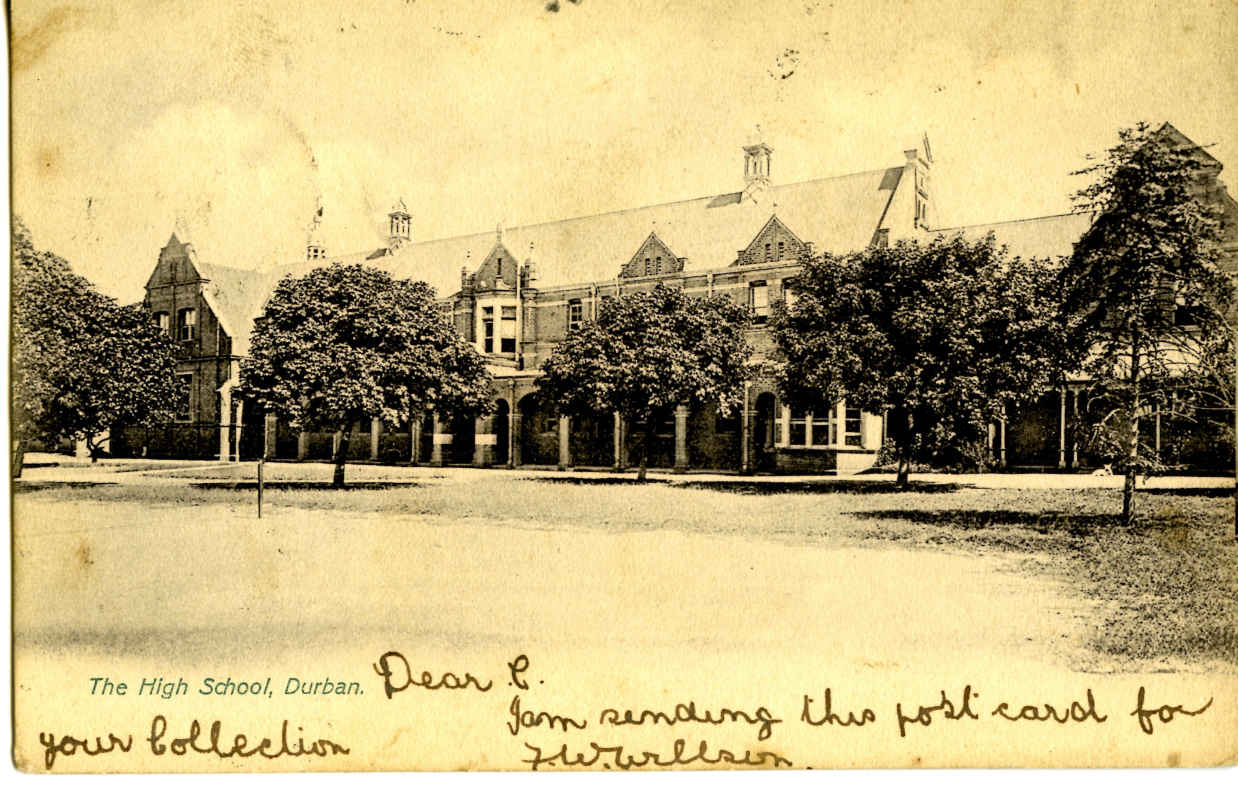 The High School, Durban.
Dear C.
I am sending this post card for
your Collection
F.W. Willson.